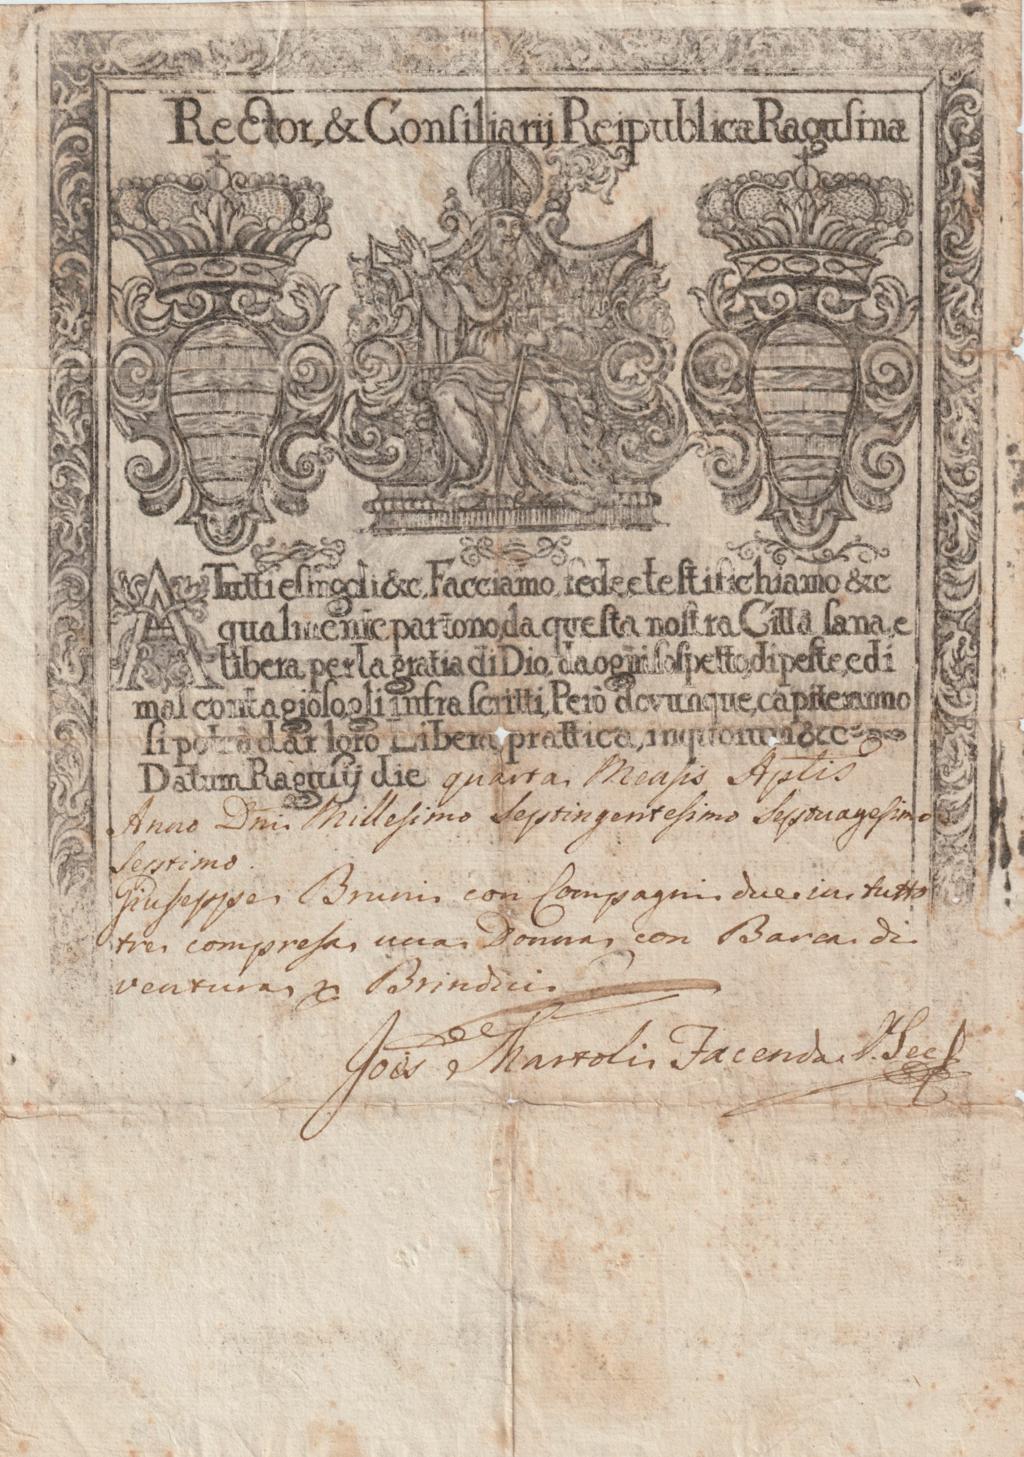 Rector, & Consiliarij Reipublicæ Ragusinæ
A Tutti e singoli &c. Facciamo fede, e testifichiamo &c
qualmente partono, da questa nostra Città sana, e
libera, per la gratia di Dio, da ogni sospetto, di peste, e di
mal contagioso, gli infrascritti, Però dovunque, capiteranno
si potrà dar loro Libera prattica, in quorum &c
Datum Ragusij die quarta Mensis Aplis
Anno Dni Millesimo Septingentesimo Septuagesimo
Septimo.
Giuseppe Bruni con Compagni due in tutto
tre compresa una Donna con Barca di
ventura Brindici
Joës de Martoli Facenda V. Sec